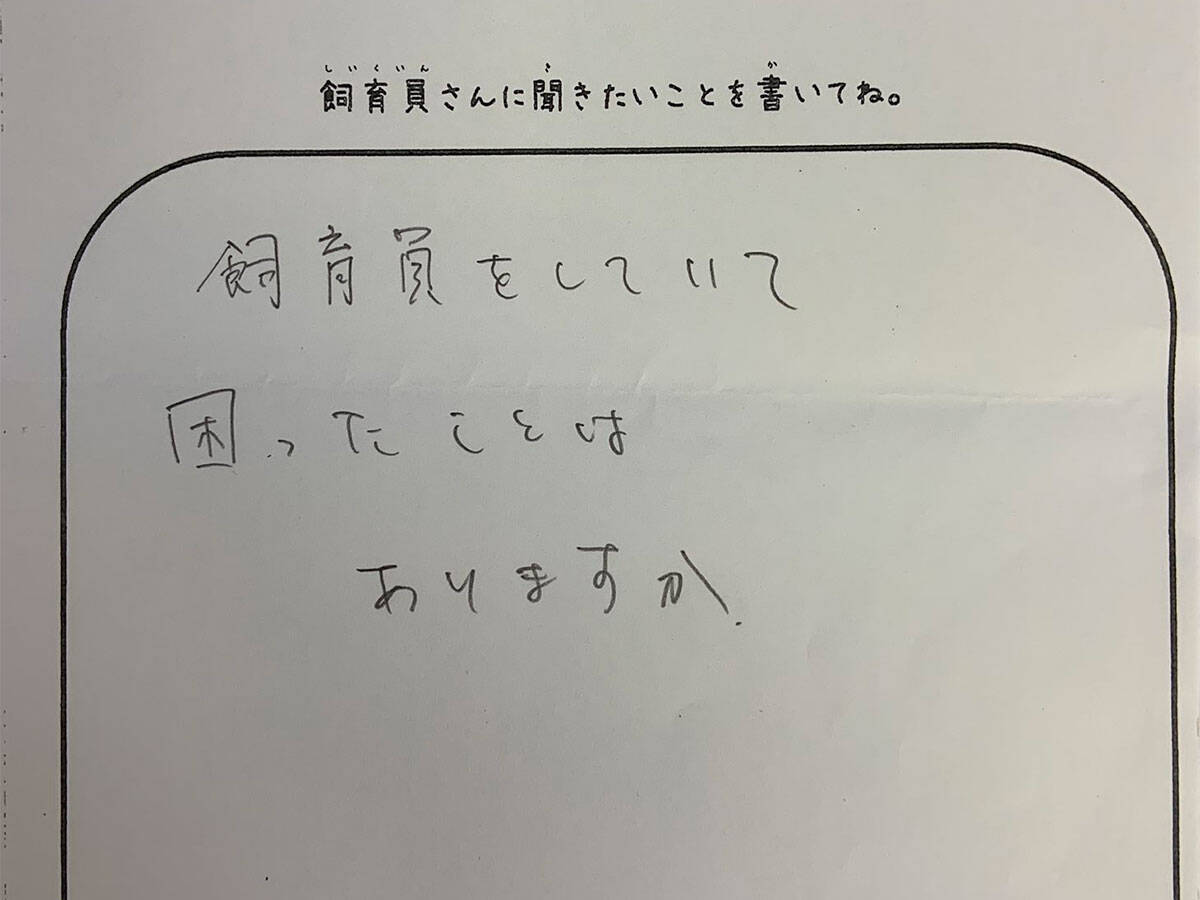 しいくいん き か
飼育員さんに聞きたいことを書いてね。
飼育員をしていて
困ったことは
ありますか.